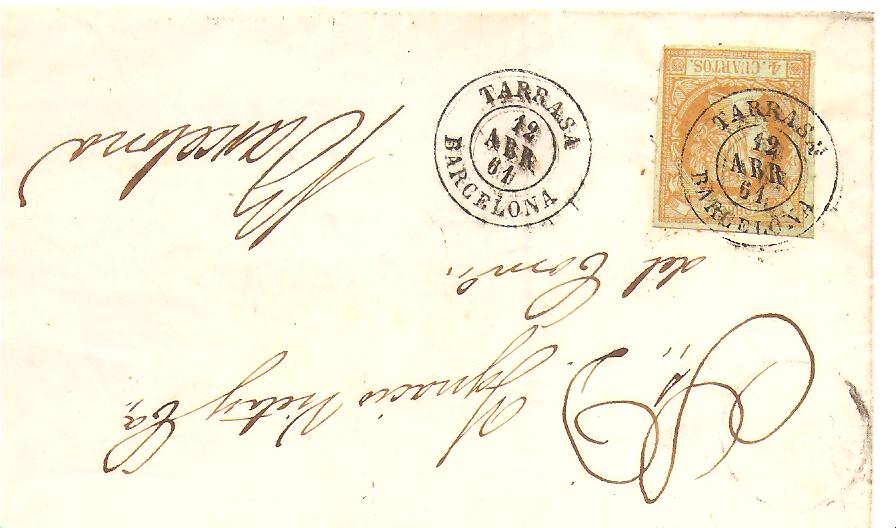 TARRASA
12
ABR
61
BARCELONA
4. CUARTOS.
TARRASA
12
ABR
61
BARCELONA
Sr. D. Ignacio
del Com.
Barcelona